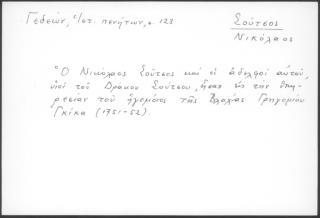 Γεδεών, Ἀποσ. πενήτων, σ. 123
Σοῦτσος
Νικόλαος
Ὁ Νικόλαος Σοῦτσος καὶ οἱ ἀδελφοί αὐτοῦ,
υἱοί τοῦ Δράκου Σούτσου, ἦσαν εἰς τὴν ὑπη-
ρεσίαν τοῦ ἡγεμόνος τῆς Βλαχίας Γρηγορίου
Γκίκα (1751-52).